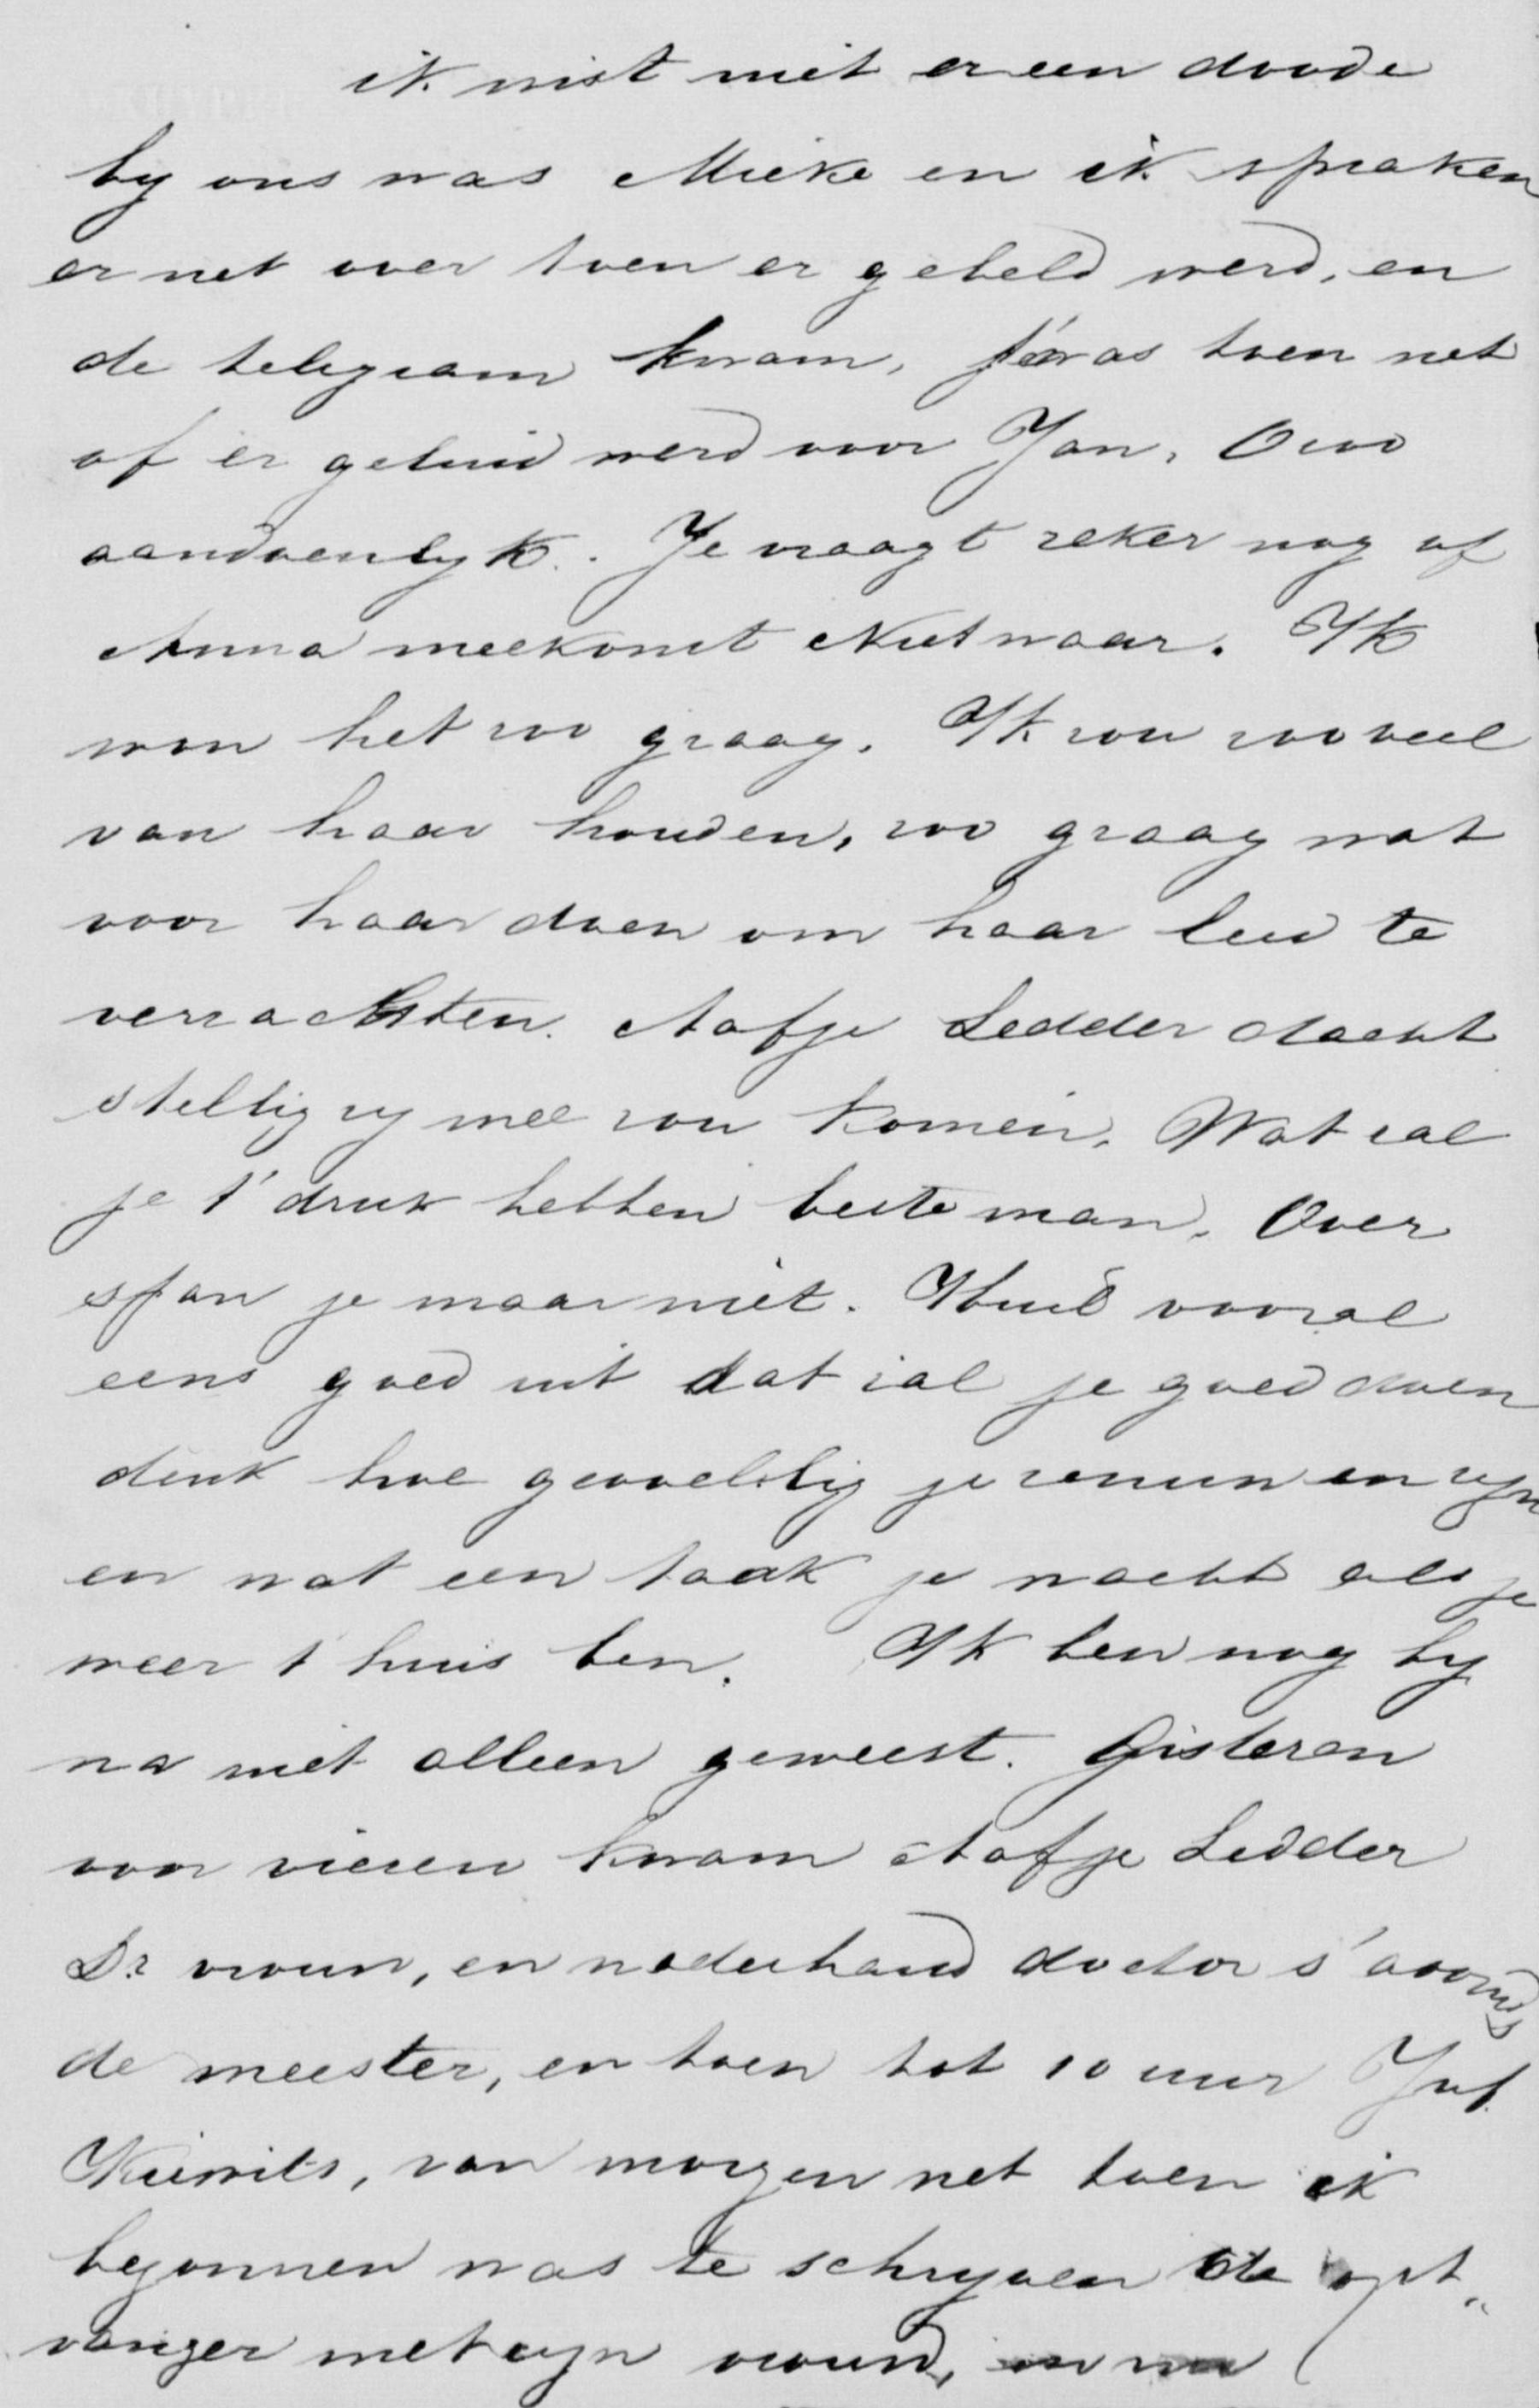 ik wist niet er een doode
by ons was Mieke en ik spraken
er net over toen er gebeld werd, en
de telegram kwam, t'was toen net
of er geluid werd voor Jan, O zoo
aandoenlyk. Je vraagt zeker nog of
Anna meekomt Niet waar. Ik
wou het zoo graag. Ik zou zooveel
van haar houden, zoo graag wat
voor haar doen om haar leed te
verzachten. Aafje Ledder dacht
stellig zy mee zou komen. Wat zal
je t' druk hebben beste man. Over
span je maar niet. Huil vooral
eens goed uit dat zal je goed doen
denk hoe gevoelig je zenuwen zyn
en wat een taak je wacht als je
weer t'huis ben. Ik ben nog by
na niet alleen geweest. Gisteren
voor vieren kwam Aafje Ledder
Dr vrouw, en naderhand doctor s'avonds
de meester, en toen tot 10 uur Juf.
Kiewits, van morgen net toen ik
begonnen was te schryven de ont„
vanger met zyn vrouw, en nu